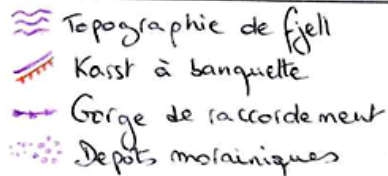 Topographie de fjell
Karst à banquette
Gorge de raccordement
Depots morainiques